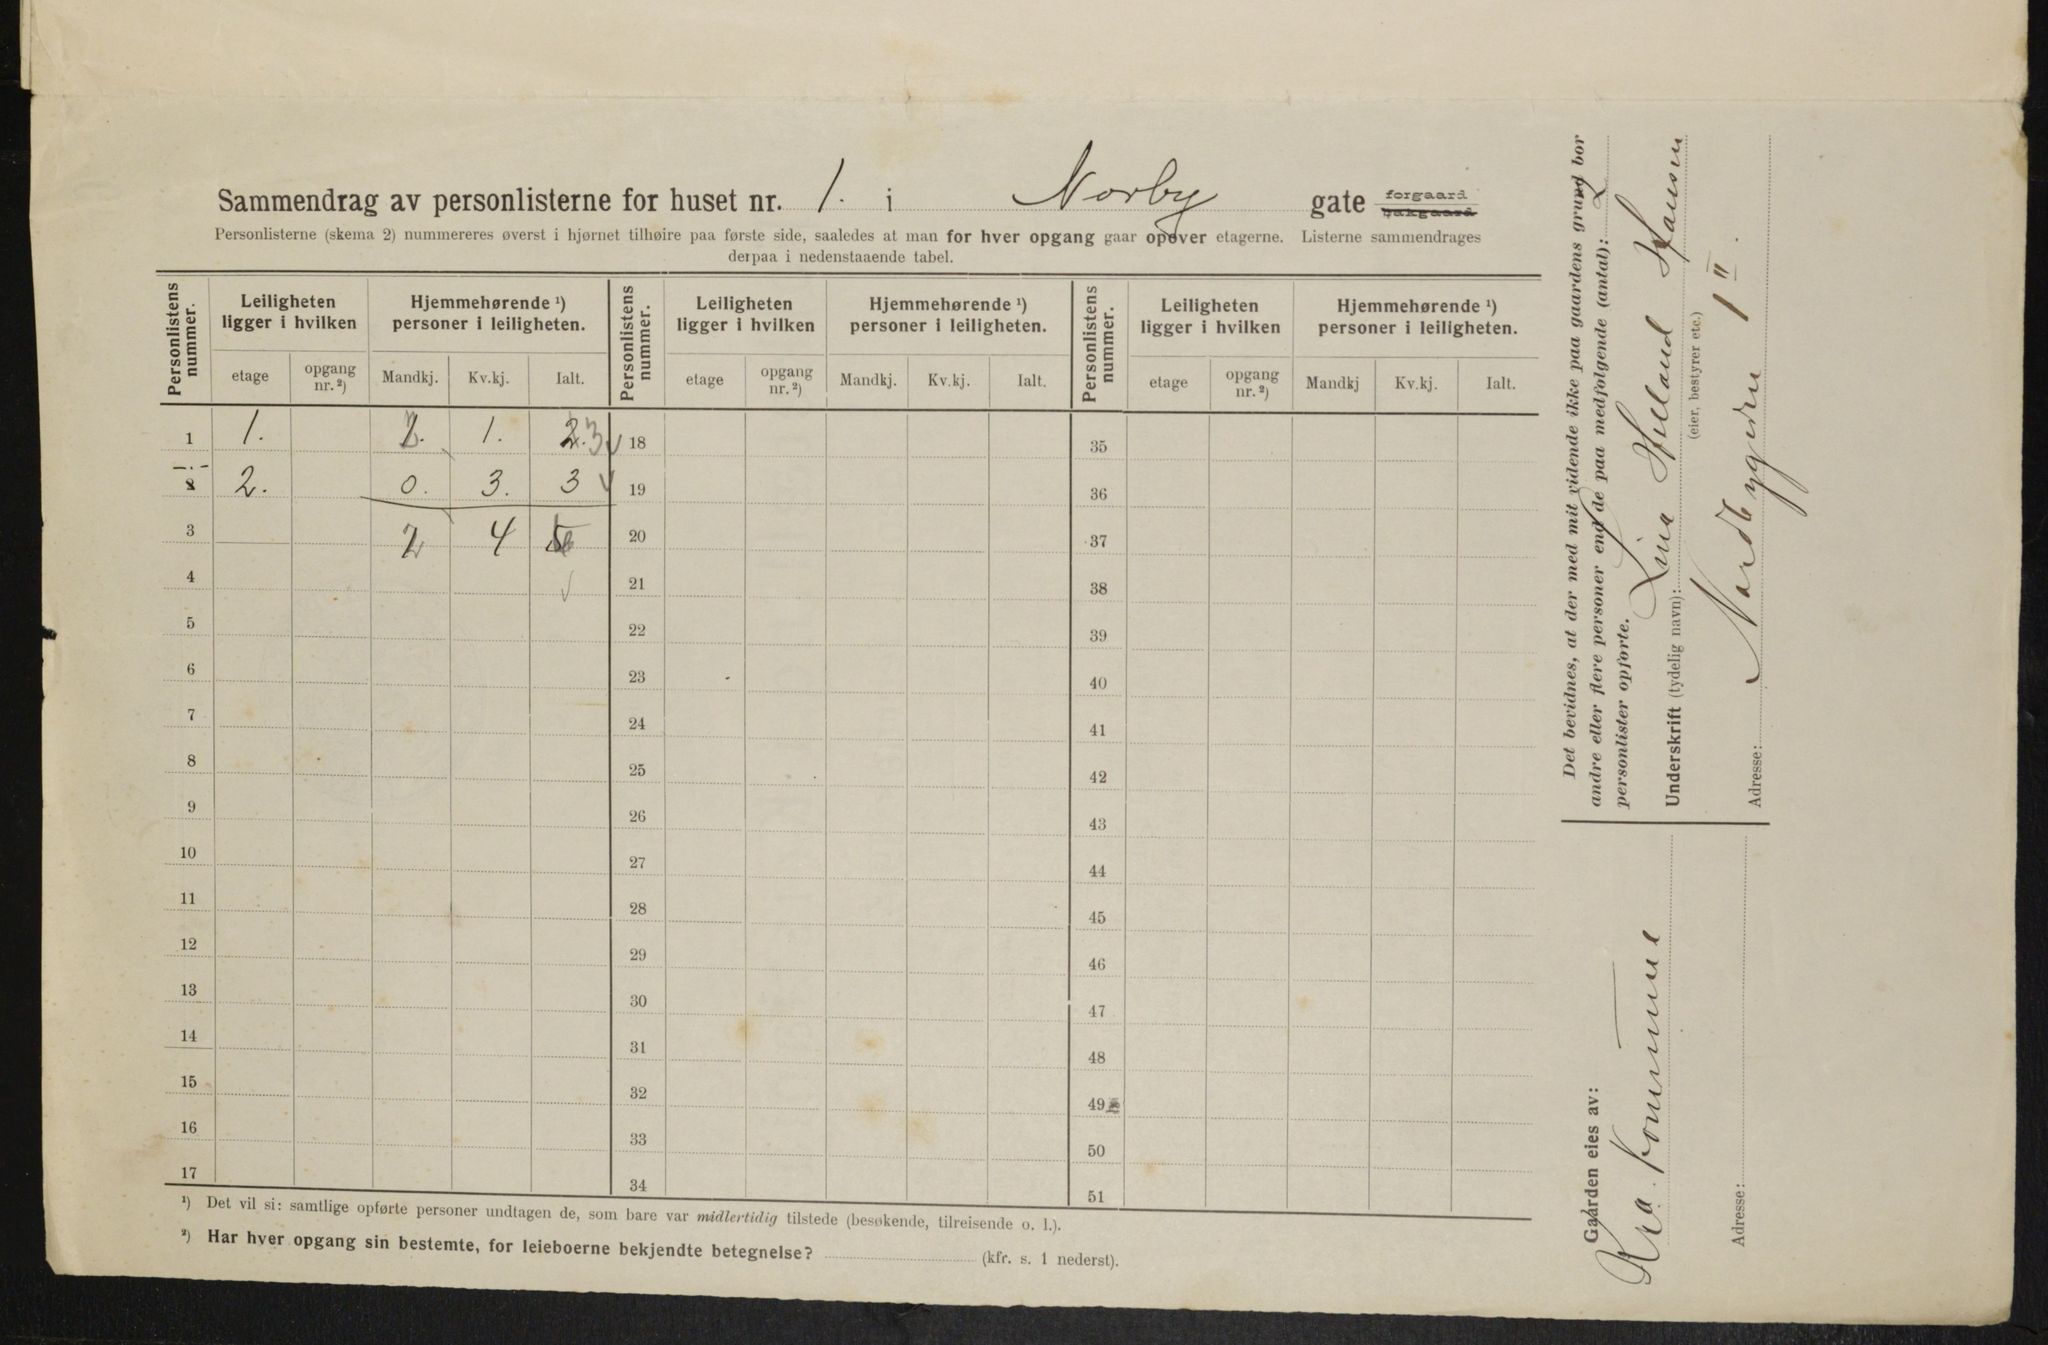 Sammendrag av personlisterne for huset nr. 1. i Norby gate forgaard bakgaard
Personlisterne (skema 2) nummereres øverst i hjørnet tilhøire paa første side, saaledes at man for hver opgang gaar opover etagerne. Listerne sammendrages
derpaa i nedenstaaende tabel.
Personlistens nummer.
Leiligheten ligger i hvilken
Hjemmehørende ¹) personer i leiligheten.
etage
opgang nr. ²)
Mandkj.
Kv.kj.
Ialt.
Personlistens nummer.
Leiligheten ligger i hvilken
Hjemmehørende ¹) personer i leiligheten.
etage
opgang nr. ²)
Mandkj.
Kv.kj.
Ialt.
Personlistens nummer.
Leiligheten ligger i hvilken
Hjemmehørende ¹) personer i leiligheten.
etage
opgang nr. ²)
Mandkj
Kv.kj.
Ialt.
1 1. 2. 1. 2. 3 18 35
2. 0. 3. 3 19 36
3 2 4 20 37
4 21 38
5 22 39
6 23 40
7 24 41
8 25 42
9 26 43
10 27 44
11 28 45
12 29 46
13 30 47
14 31 48
15 32 49
16 33 50
17 34 51
¹) Det vil si: samtlige opførte personer undtagen de, som bare var midlertidig tilstede (besøkende, tilreisende o. l.).
²) Har hver opgang sin bestemte, for leieboerne bekjendte betegnelse? (kfr. s. 1 nederst).
Det bevidnes, at der med mit vidende ikke paa gaardens grund bor
andre eller flere personer end de paa medfølgende (antal): 2
personlister opførte.
Underskrift (tydelig navn): Lina Helland Hansen
(eier, bestyrer etc.)
Adresse: Nordbygaden 1 II.
Gaarden eies av:
Kra. kommune
Adresse: